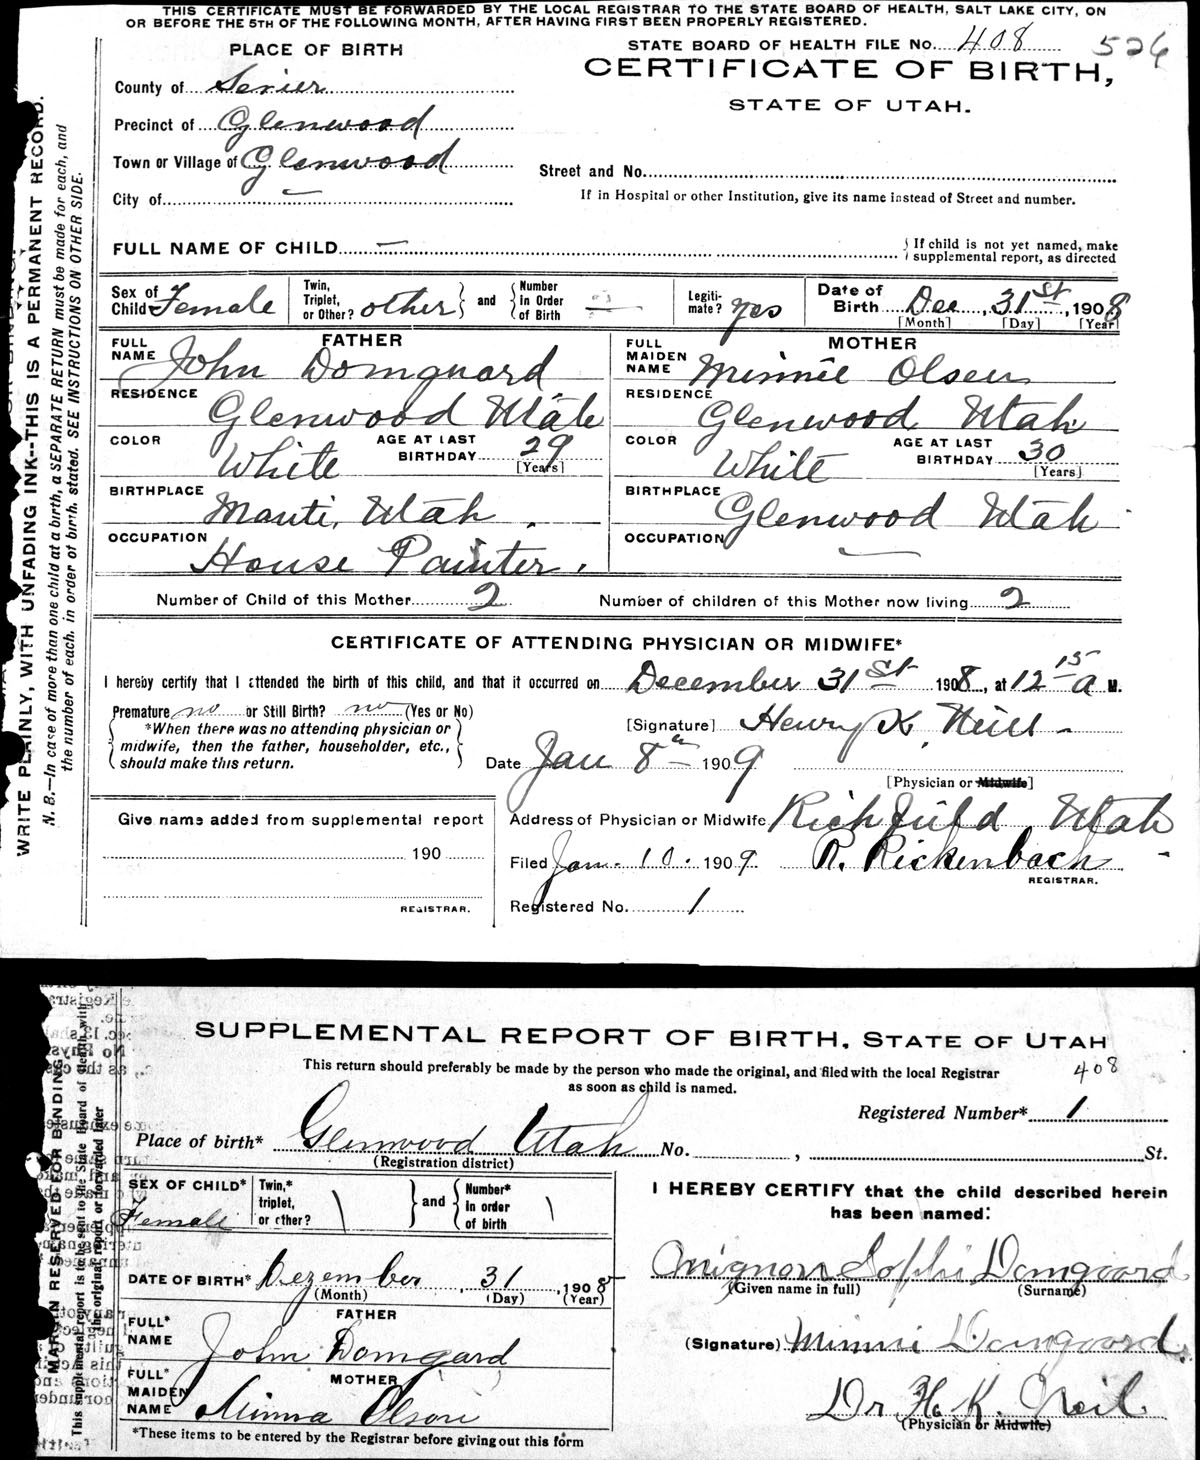 THIS CERTIFICATE MUST BE FORWARDED BY THE LOCAL REGISTRAR TO THE STATE BOARD OF HEALTH, SALT LAKE CITY, ON
OR BEFORE THE 5TH OF THE FOLLOWING MONTH, AFTER HAVING FIRST BEEN PROPERLY REGISTERED.
PLACE OF BIRTH
STATE BOARD OF HEALTH FILE No. 408 526
CERTIFICATE OF BIRTH,
STATE OF UTAH.
County of Sevier
Precinct of Glenwood
Town or Village of Glenwood
Street and No.
City of —
If in Hospital or other Institution, give its name instead of Street and number.
FULL NAME OF CHILD —
{ If child is not yet named, make
supplemental report, as directed
Sex of Child Female
Twin, Triplet, or Other? other } and { Number in Order of Birth —
Legitimate? yes
Date of Birth Dec, 31st, 1908
[Month] [Day] [Year]
FATHER
FULL NAME John Domguard
RESIDENCE Glenwood Utah
COLOR White AGE AT LAST BIRTHDAY 29 [Years]
BIRTHPLACE Manti, Utah.
OCCUPATION House Painter.
MOTHER
FULL MAIDEN NAME Minnie Olsen
RESIDENCE Glenwood Utah
COLOR White AGE AT LAST BIRTHDAY 30 [Years]
BIRTHPLACE Glenwood Utah
OCCUPATION —
Number of Child of this Mother 2 Number of children of this Mother now living 2
CERTIFICATE OF ATTENDING PHYSICIAN OR MIDWIFE*
I hereby certify that I attended the birth of this child, and that it occurred on December 31st 1908, at 12 15 a M.
Premature no or Still Birth? no (Yes or No)
{ *When there was no attending physician or
midwife, then the father, householder, etc.,
should make this return. }
[Signature] Henry K. Neill -
Date Jan 8th 1909
[Physician or Midwife]
Give name added from supplemental report
190
REGISTRAR.
Address of Physician or Midwife Richfield Utah
Filed Jan. 10. 1909. R. Rickenbach -
REGISTRAR.
Registered No. 1
WRITE PLAINLY, WITH UNFADING INK--THIS IS A PERMANENT RECORD.
N. B.—In case of more than one child at a birth, a SEPARATE RETURN must be made for each, and
the number of each, in order of birth, stated. SEE INSTRUCTIONS ON OTHER SIDE.
SUPPLEMENTAL REPORT OF BIRTH, STATE OF UTAH
This return should preferably be made by the person who made the original, and filed with the local Registrar
as soon as child is named.
408
Registered Number* 1
Place of birth* Glenwood Utah No. , St.
(Registration district)
SEX OF CHILD* Female
Twin,* triplet, or other? \ } and { Number* In order of birth \
DATE OF BIRTH* Dezember, 31, 1908
(Month) (Day) (Year)
FATHER
FULL* NAME John Domgard
MOTHER
FULL* MAIDEN NAME Minna Olson
*These items to be entered by the Registrar before giving out this form
I HEREBY CERTIFY that the child described herein
has been named:
Mignon Sophi Domgaard
(Given name in full) (Surname)
(Signature) Minni Domgaard
Dr H. K. Neil
(Physician or Midwife)
MARGIN RESERVED FOR BINDING
This supplemental report is to be sent to the State Board of Health with
the original report or forwarded later